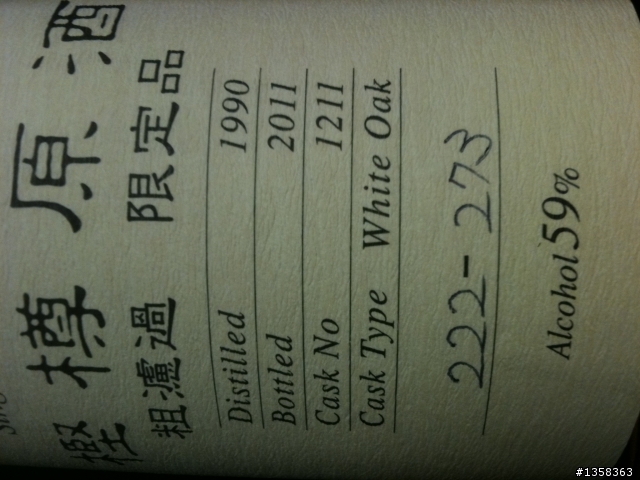 樫樽原酒
粗濾過 限定品
Distilled 1990
Bottled 2011
Cask No 1211
Cask Type White Oak
222-273
Alcohol 59%
#1358363